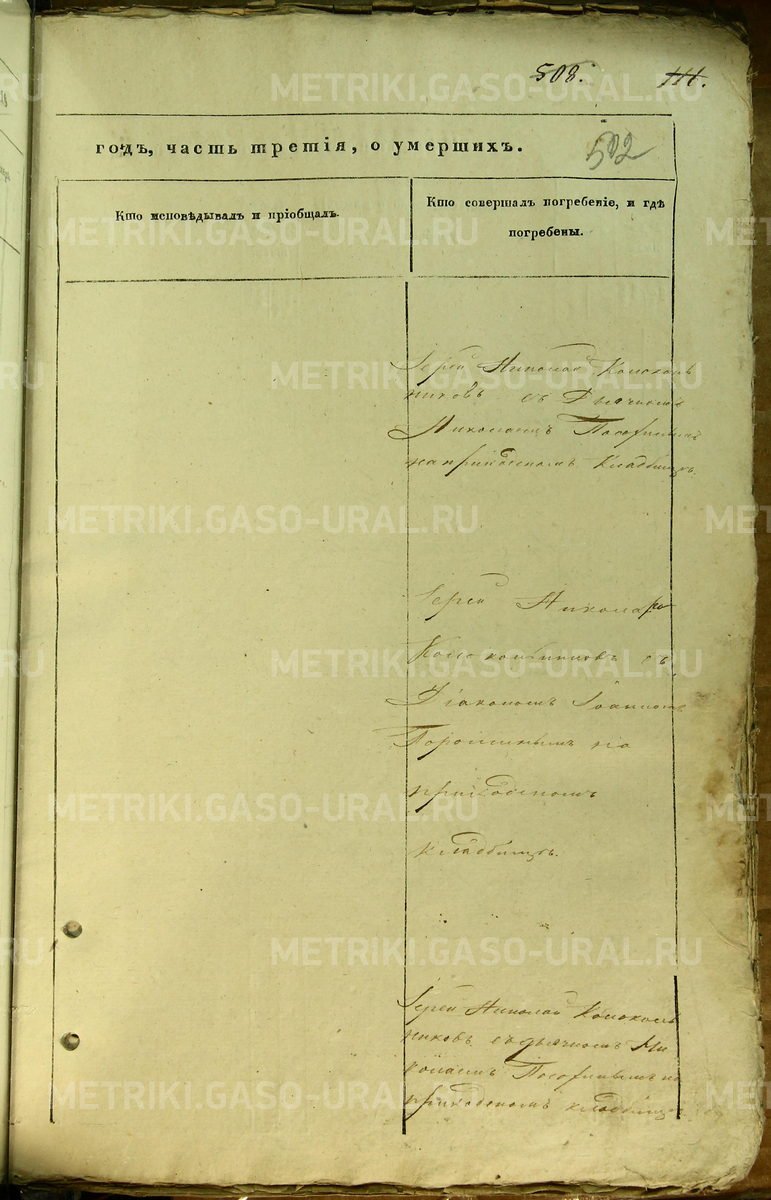 508. 111.
502
годъ, часть третія, о умершихъ.
Кто исповѣдывалъ и пріобщалъ.
Кто совершалъ погребеніе, и гдѣ
погребены.
Іерей Николай Колоколь
никовъ съ Дьячкомъ
Николаемъ
на приходскомъ кладбищѣ.
Іерей Николай
Колокольниковъ съ
Діакономъ Іоанномъ
Порошинымъ на
приходскомъ
кладбищѣ.
Іерей Николай Коколь
никовъ съ дьячкомъ Ни
колаемъ на
приходскомъ кладбищѣ
METRIKI.GASO-URAL.RU